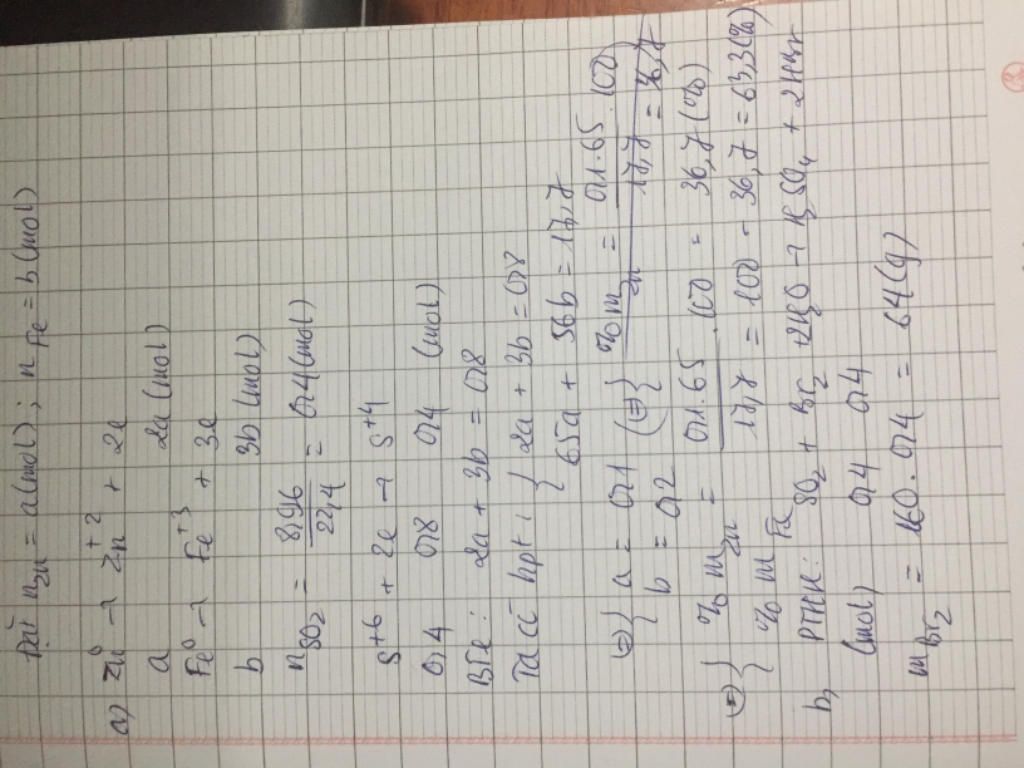 Đặt nZn = a(mol); nFe = b(mol)
a, Zn⁰ → Zn⁺² + 2e
a 2a (mol)
Fe⁰ → Fe⁺³ + 3e
b 3b (mol)
nSO₂ = 8,96/22,4 = 0,4 (mol)
S⁺⁶ + 2e → S⁺⁴
0,4 0,8 0,4 (mol)
BTe: 2a + 3b = 0,8
Ta có hpt: { 2a + 3b = 0,8
65a + 56b = 17,7
(=) { a = 0,1 (=) { %mZn = 0,1.65.100/17,7 = 36,7
b = 0,2
(=) { %mZn = 0,1.65/17,7 .100 = 36,7 (%)
%mFe = 100 - 36,7 = 63,3 (%)
b, PTHH: SO₂ + Br₂ + 2H₂O → H₂SO₄ + 2HBr
(mol) 0,4 0,4
mBr₂ = 160.0,4 = 64 (g)